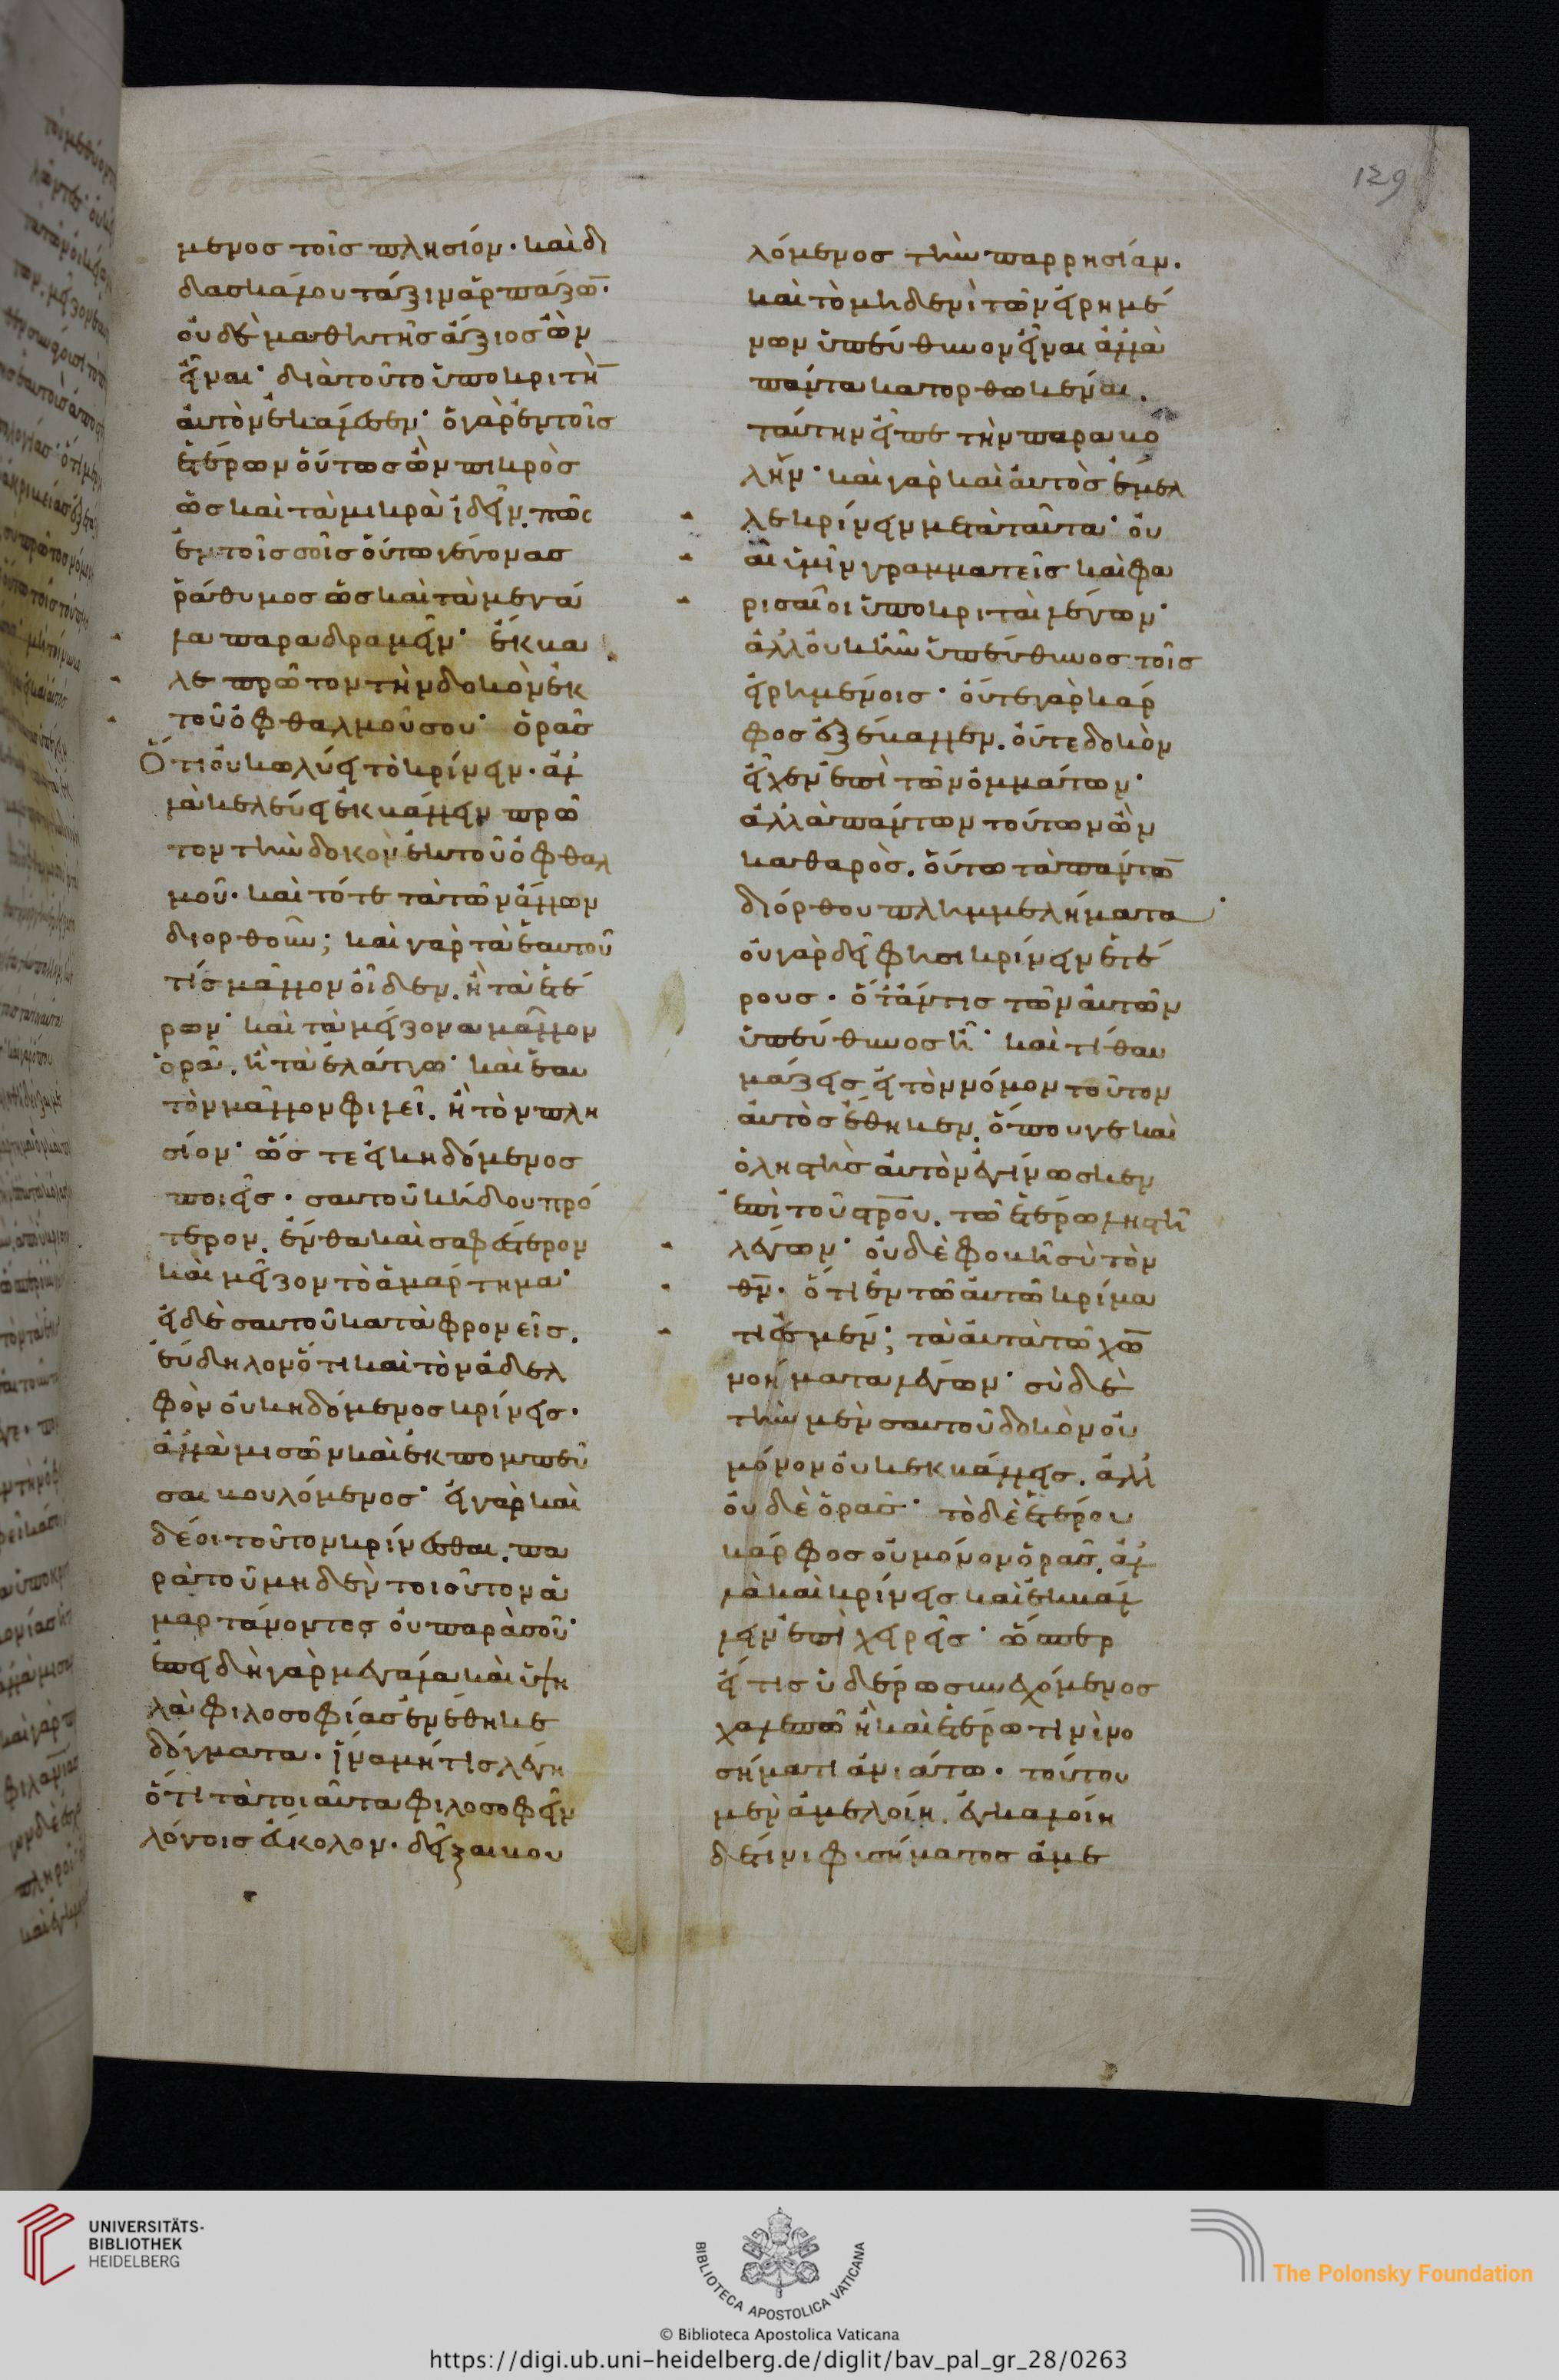 129
μενος τοῖς πλησίον· καὶ δι
δασκάλου τάξιν ἁρπάζω̅·
οὐδὲ μαθητῆς ἄξιος ὢν
εἶναι· διατοῦτο ὑποκριτὴ̅
αὐτὸν ἐκάλεσεν· ὁ γὰρ ἐν τοῖς
ἑτέρων οὕτως ὢν πικρὸς
ὡς καὶ τὰ μικρὰ ἰδεῖν, πῶς
ἐν τοῖς σοῖς οὕτω γέγονας
ῥάθυμος ὡς καὶ τὰ μεγά
λα παραδραμεῖν· ἔκβα
λε πρῶτον τὴν δοκὸν ἐκ
τοῦ ὀφθαλμοῦ σου· ὁρᾶς
Ὅτι οὐ κωλύει τὸ κρίνειν. ἀλ
λὰ κελεύει ἐκβάλλειν πρῶ
τον τὴν δοκὸν ἐκ τοῦ ὀφθαλ
μοῦ· καὶ τότε τὰ τῶν ἄλλων
διορθοῦν; καὶ γὰρ τὰ ἑαυτοῦ
τίς μᾶλλον οἶδεν. ἢ τὰ ἑτέ
ρων· καὶ τὰ μείζονα μᾶλλον
ὁρᾶ. ἢ τὰ ἐλάττω· καὶ ἑαυ
τὸν μᾶλλον φιλεῖ. ἢ τὸν πλη
σίον· ὥστε εἰ κηδόμενος
ποιεῖς. σαυτοῦ κήδου πρό
τερον. ἔνθα καὶ σαφέστερον
καὶ μεῖζον τὸ ἁμάρτημα·
εἰ δὲ σαυτοῦ καταφρονεῖς.
εὔδηλον ὅτι καὶ τὸν ἀδελ
φὸν οὐ κηδόμενος κρίνεις.
ἀλλὰ μισῶν καὶ ἐκπομπεῦ
σαι βουλόμενος· εἰ γὰρ καὶ
δέοι τοῦτον κρίνεσθαι. πα
ρὰ τοῦ μηδὲν τοιοῦτον ἁ
μαρτάνοντος οὐ παρὰ σοῦ·
ἐπειδὴ γὰρ μεγάλα καὶ ὑψη
λὰ φιλοσοφίας ἐνέθηκε
δόγματα. ἵνα μή τις λέγη
ὅτι τὰ τοιαῦτα φιλοσοφεῖν
λόγοις εὔκολον. δεῖξαι βου
λόμενος τὴν παρρησίαν.
καὶ τὸ μηδενὶ τῶν εἰρημέ
νων ὑπεύθυνον εἶναι ἀλλὰ
πάντα κατορθωκέναι.
ταύτην εἶπε τὴν παραβο
λήν· καὶ γὰρ καὶ αὐτὸς ἔμελ
λε κρίνειν μετὰ ταῦτα· οὐ
αὶ ὑμῖν γραμματεῖς καὶ φα
ρισαῖοι ὑποκριταὶ λέγων·
ἀλλ' οὐκ ἦν ὑπεύθυνος τοῖς
εἰρημένοις· οὔτε γὰρ κάρ
φος ἐξέβαλλεν. οὔτε δοκὸν
εἶχεν ἐπὶ τῶν ὀμμάτων·
ἀλλὰ πάντων τούτων ὢν
καθαρὸς. οὕτω τὰ πάντω̅
διόρθου πλημμελήματα·
οὐ γὰρ δεῖ φησι κρίνειν ἑτέ
ρους. ὅτ' ἄν τις τῶν αὐτῶν
ὑπεύθυνος ἦ· καὶ τί θαυ
μάζεις εἰ τὸν νόμον τοῦτον
αὐτὸς ἔθηκεν. ὅπου γε καὶ
ὁ ληστὴς αὐτὸν ἐγίνωσκεν
ἐπὶ τοῦ στρο̅υ. τῶ ἑτέρω ληστῆ
λέγων· οὐδὲ φοβῆ σὺ τὸν
θν̅. ὅτι ἐν τῶ αὐτῶ κρίμα
τι ἐσμέν; τὰ αὐτὰ τῶ χω̅
νοήματα λέγων· σὺ δὲ
τὴν μὲν σαυτοῦ δοκὸν οὐ
μόνον οὐκ ἐκβάλλεις. ἀλλ'
οὐδὲ ὁρᾶς· τὸ δὲ ἑτέρου
κάρφος οὐ μόνον ὁρᾶς, ἀλ
λὰ καὶ κρίνεις καὶ ἐκβάλ
λειν ἐπιχειρεῖς· ὥσπερ
εἴ τις ὑδέρω συνεχόμενος
χαλεπῶ ἢ καὶ ἑτέρω τινὶ νο
σήματι ἀνιάτω. τούτου
μὲν ἀμελοίη. ἐγκαλοίη
δὲ ἑτέρω οἰδήματος ἀμε
UNIVERSITÄTS-
BIBLIOTHEK
HEIDELBERG
BIBLIOTECA APOSTOLICA VATICANA
The Polonsky Foundation
© Biblioteca Apostolica Vaticana
https://digi.ub.uni-heidelberg.de/diglit/bav_pal_gr_28/0263